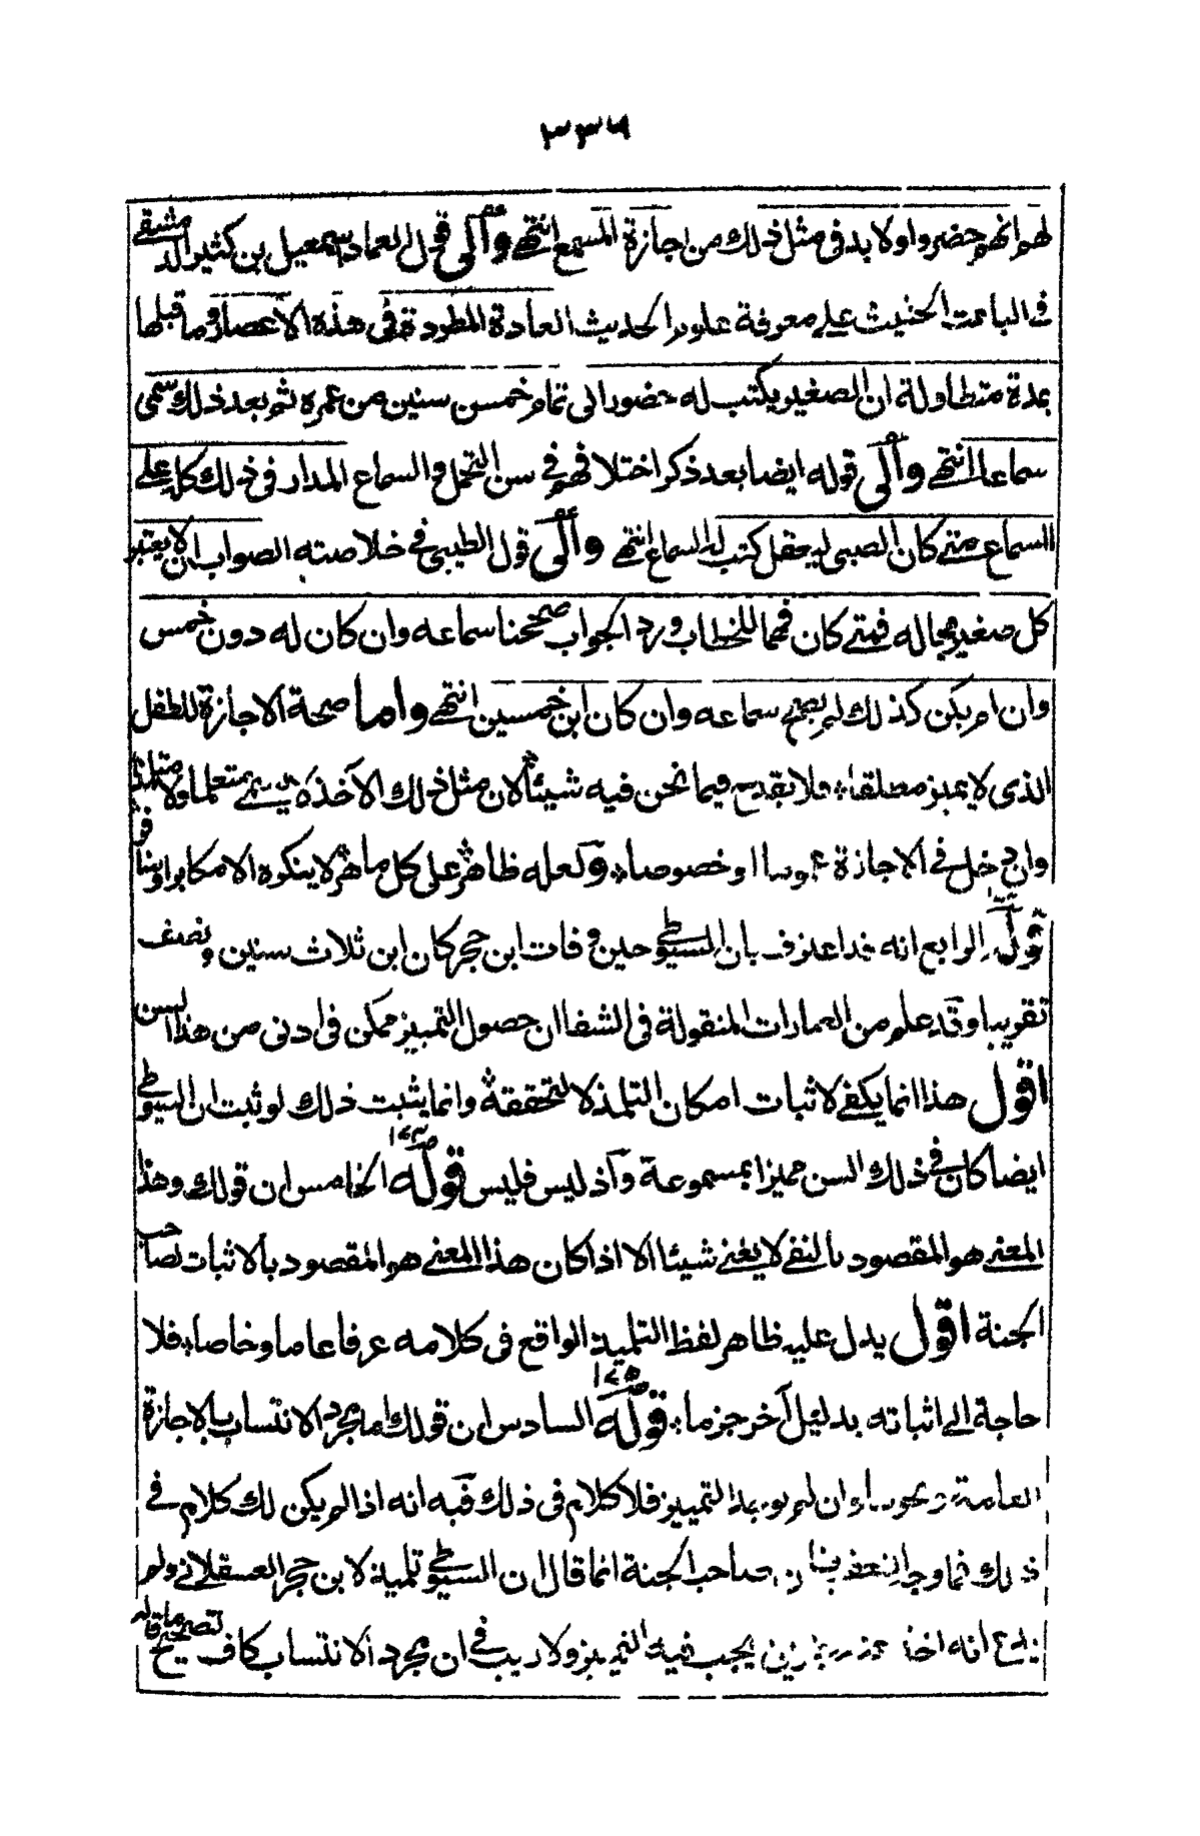 ٣٣٦
لهم انهم حضروا ولا بد فى مثل ذلك من اجازة المسمع انتهى وآلى قول العماد اسمعيل بن كثير الدمشقى
فى الباعث الحثيث على معرفة علوم الحديث العادة المطردة فى هذه الاعصار وما قبلها
بمدة متطاولة ان الصغير يكتب له حضور الى تمام خمس سنين من عمره ثم بعد ذلك سمى
سماعا انتهى وآلى قوله ايضا بعد ذكر اختلافهم فى سن التحمل والسماع المدار فى ذلك كله على
السماع متى كان الصبى يعقل كتب له السماع انتهى وآلى قول الطيبى فى خلاصته الصواب ان يعتبر
كل صغير بحاله فمتى كان فهما للخطاب ورد الجواب صححنا سماعه وان كان له دون خمس
وان لم يكن كذلك لم يصح سماعه وان كان ابن خمسين انتهى واما صحة الاجازة للطفل
الذى لا يميز مطلقا فلا يقدح فيما نحن فيه شيئا لان مثل ذلك الآخذ لا يسمى متعلما ولا متلمذا
وان دخل فى الاجازة عموما او خصوصا ولعله ظاهر على كل ماهر لا ينكره الا مكابر او
قوله الرابع انه قد اعترف بان السيوطى حين وفات ابن حجر كان ابن ثلاث سنين ونصف
تقريبا وقد علم من العبارات المنقولة فى الشفا ان حصول التمييز ممكن فى ادنى من هذا السن
اقول هذا انما يكفى لاثبات امكان التلمذ لا لتحققه وانما يثبت ذلك لو ثبت ان السيوطى
ايضا كان فى ذلك السن مميزا بمسموعه وآذ ليس فليس قوله الخامس ان قولك وهذا
المعنى هو المقصود بالنفى لا يغنى شيئا الا اذا كان هذا المعنى هو المقصود بالاثبات لصاحب
الجنة اقول يدل عليه ظاهر لفظ التلميذ الواقع فى كلامه عرفا عاما وخاصا فلا
حاجة الى اثباته بدليل آخر جزما قوله السادس ان قولك اما مجرد الانتساب بالاجازة
العامة ونحوها وان لم يوجد التمييز فلا كلام فى ذلك فيه انه اذا لم يكن لك كلام فى
ذلك فما وجه صاحب الجنة انما قال ان السيوطى تلميذ لابن حجر العسقلانى ولم
يدع انه اخذ يجب فيه التمييز ولا ريب فى ان مجرد الانتساب كاف لتصحيح ما قاله